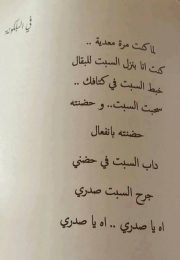 في البلكونة
لما كنت مرة معدية ..
كنت انا بنزل السبت للبقال
خبط السبت في كتافك ..
سحبت السبت .. و حضنته
حضنته بانفعال
داب السبت في حضني
جرح السبت صدري
اه يا صدري .. اه يا صدري